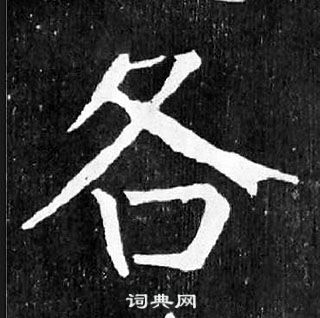 各
词典网